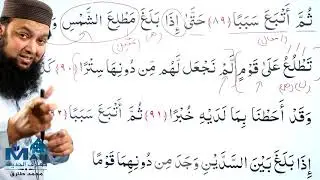 ثُمَّ أَتْبَعَ سَبَبًا (٨٩) حَتَّىٰ إِذَا بَلَغَ مَطْلِعَ الشَّمْسِ وَ
تَطْلُعُ عَلَىٰ قَوْمٍ لَّمْ نَجْعَل لَّهُم مِّن دُونِهَا سِتْرًا (٩٠) كَ
وَقَدْ أَحَطْنَا بِمَا لَدَيْهِ خُبْرًا (٩١) ثُمَّ أَتْبَعَ سَبَبًا (٩٢)
إِذَا بَلَغَ بَيْنَ السَّدَّيْنِ وَجَدَ مِن دُونِهِمَا قَوْمًا
محمد طارق